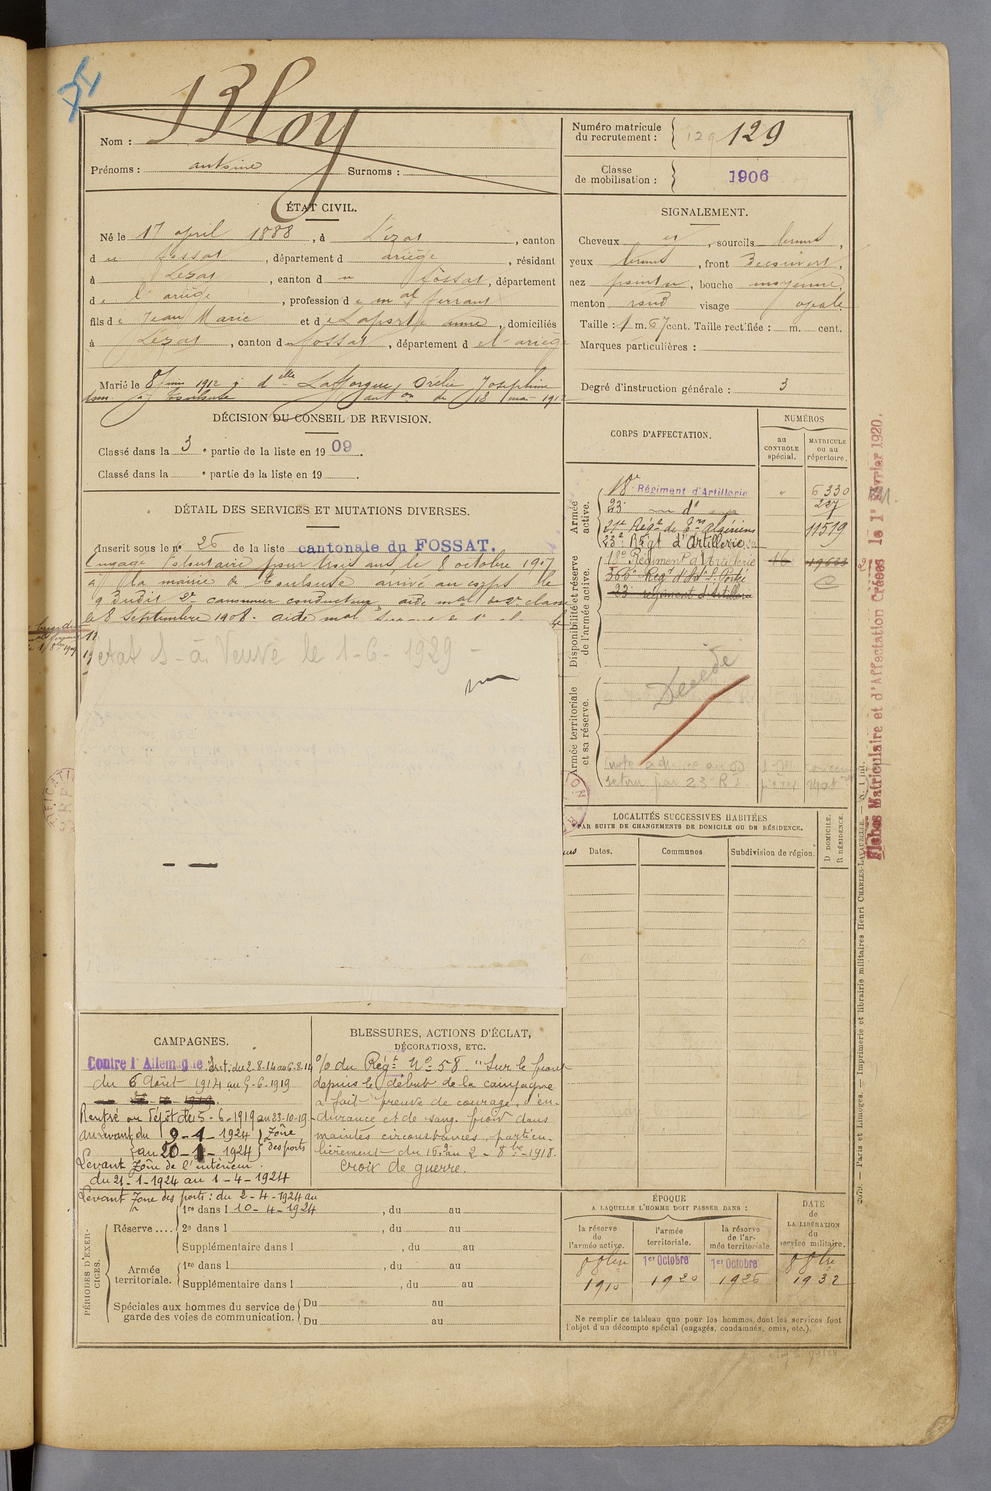 Bloy
Nom :
Prénoms : antoine Surnoms :
Numéro matricule du recrutement : 129 129
Classe de mobilisation : 1906
ÉTAT CIVIL.
Né le 17 april 1888, à Lézat, canton
du Fossat, département d ariège, résidant
à Lézat, canton du Fossat, département
de l'ariège, profession de mal ferrant
fils de Jean Marie et de Laporte anne, domiciliés
à Lézat, canton du Fossat, département de l'ariège
Marié le 8 juin 1912 à dlle Lafforgue, Joséphine
dom. à Toulouse aut on du 18 mai 191
SIGNALEMENT.
Cheveux, sourcils bruns,
yeux bruns, front Découvert,
nez pointu, bouche moyenne,
menton rond visage ovale
Taille : 1 m. 67 cent. Taille rectifiée : m. cent.
Marques particulières :
Degré d'instruction générale : 3
DÉCISION DU CONSEIL DE REVISION.
Classé dans la 3e partie de la liste en 1909.
Classé dans la e partie de la liste en 19 .
DÉTAIL DES SERVICES ET MUTATIONS DIVERSES.
Inscrit sous le n° 26 de la liste cantonale du FOSSAT.
Engagé Volontaire pour trois ans le 8 octobre 1907
à la mairie de Toulouse arrivé au corps le
9 dudit 2e canonnier conducteur, aide mal de 2e classe
le 8 Septembre 1908. aide mal
etat S-à Veuve le 1-6-1929 -
CORPS D'AFFECTATION.
NUMÉROS
au CONTROLE spécial.
MATRICULE ou au répertoire.
Armée active.
18e Régiment d'Artillerie 6330
23 d° 227
Régt de algériens 11519
23e Régt d'Artillerie
Disponibilité et réserve de l'armée active.
18e Régiment d'Artillerie 16
23 régiment d'Artillerie
Armée territoriale et sa réserve.
Décédé
retour par 23 R
Fiches Matriculaire et d'Affectation Créées le 1er Février 1920.
LOCALITÉS SUCCESSIVES HABITÉES
PAR SUITE DE CHANGEMENTS DE DOMICILE OU DE RÉSIDENCE.
Dates.
Communes
Subdivision de région.
D DOMICILE.
R RÉSIDENCE.
Paris et Limoges. — Imprimerie et librairie militaires Henri CHARLES-LAVAUZELLE.
CAMPAGNES.
Contre l'Allemagne Int. du 2.8.14 au 6.8.14
du 6 Août 1914 au 5-6-1919
Rentré au Dépôt du 5-6-1919 au 23-10-19
au Levant du 9-1-1924 Zône
au 20-1-1924 des ports
Levant Zône de l'intérieur
du 21-1-1924 au 1-4-1924
Levant Zone des ports : du 2-4-1924 au
10-4-1924
BLESSURES, ACTIONS D'ÉCLAT,
DÉCORATIONS, ETC.
O/ du Régt N° 58. "Sur le front
depuis le début de la campagne
a fait preuve de courage, d'en-
durance et de sang froid dans
maintes circonstances, particu-
lièrement du 16 au 2-8bre-1918.
Croix de guerre.
PÉRIODES D'EXERCICES.
Réserve ....
1re dans l , du au
2e dans l , du au
Supplémentaire dans l , du au
Armée territoriale.
1re dans l , du au
Supplémentaire dans l , du au
Spéciales aux hommes du service de
garde des voies de communication.
Du au
Du au
ÉPOQUE
A LAQUELLE L'HOMME DOIT PASSER DANS :
la réserve de l'armée active.
l'armée territoriale.
la réserve de l'armée territoriale
DATE de LA LIBÉRATION du service militaire.
8bre 1910
1er Octobre 1920
1er Octobre 1926
8bre 1932
Ne remplir ce tableau que pour les hommes dont les services font
l'objet d'un décompte spécial (engagés, condamnés, omis, etc.).